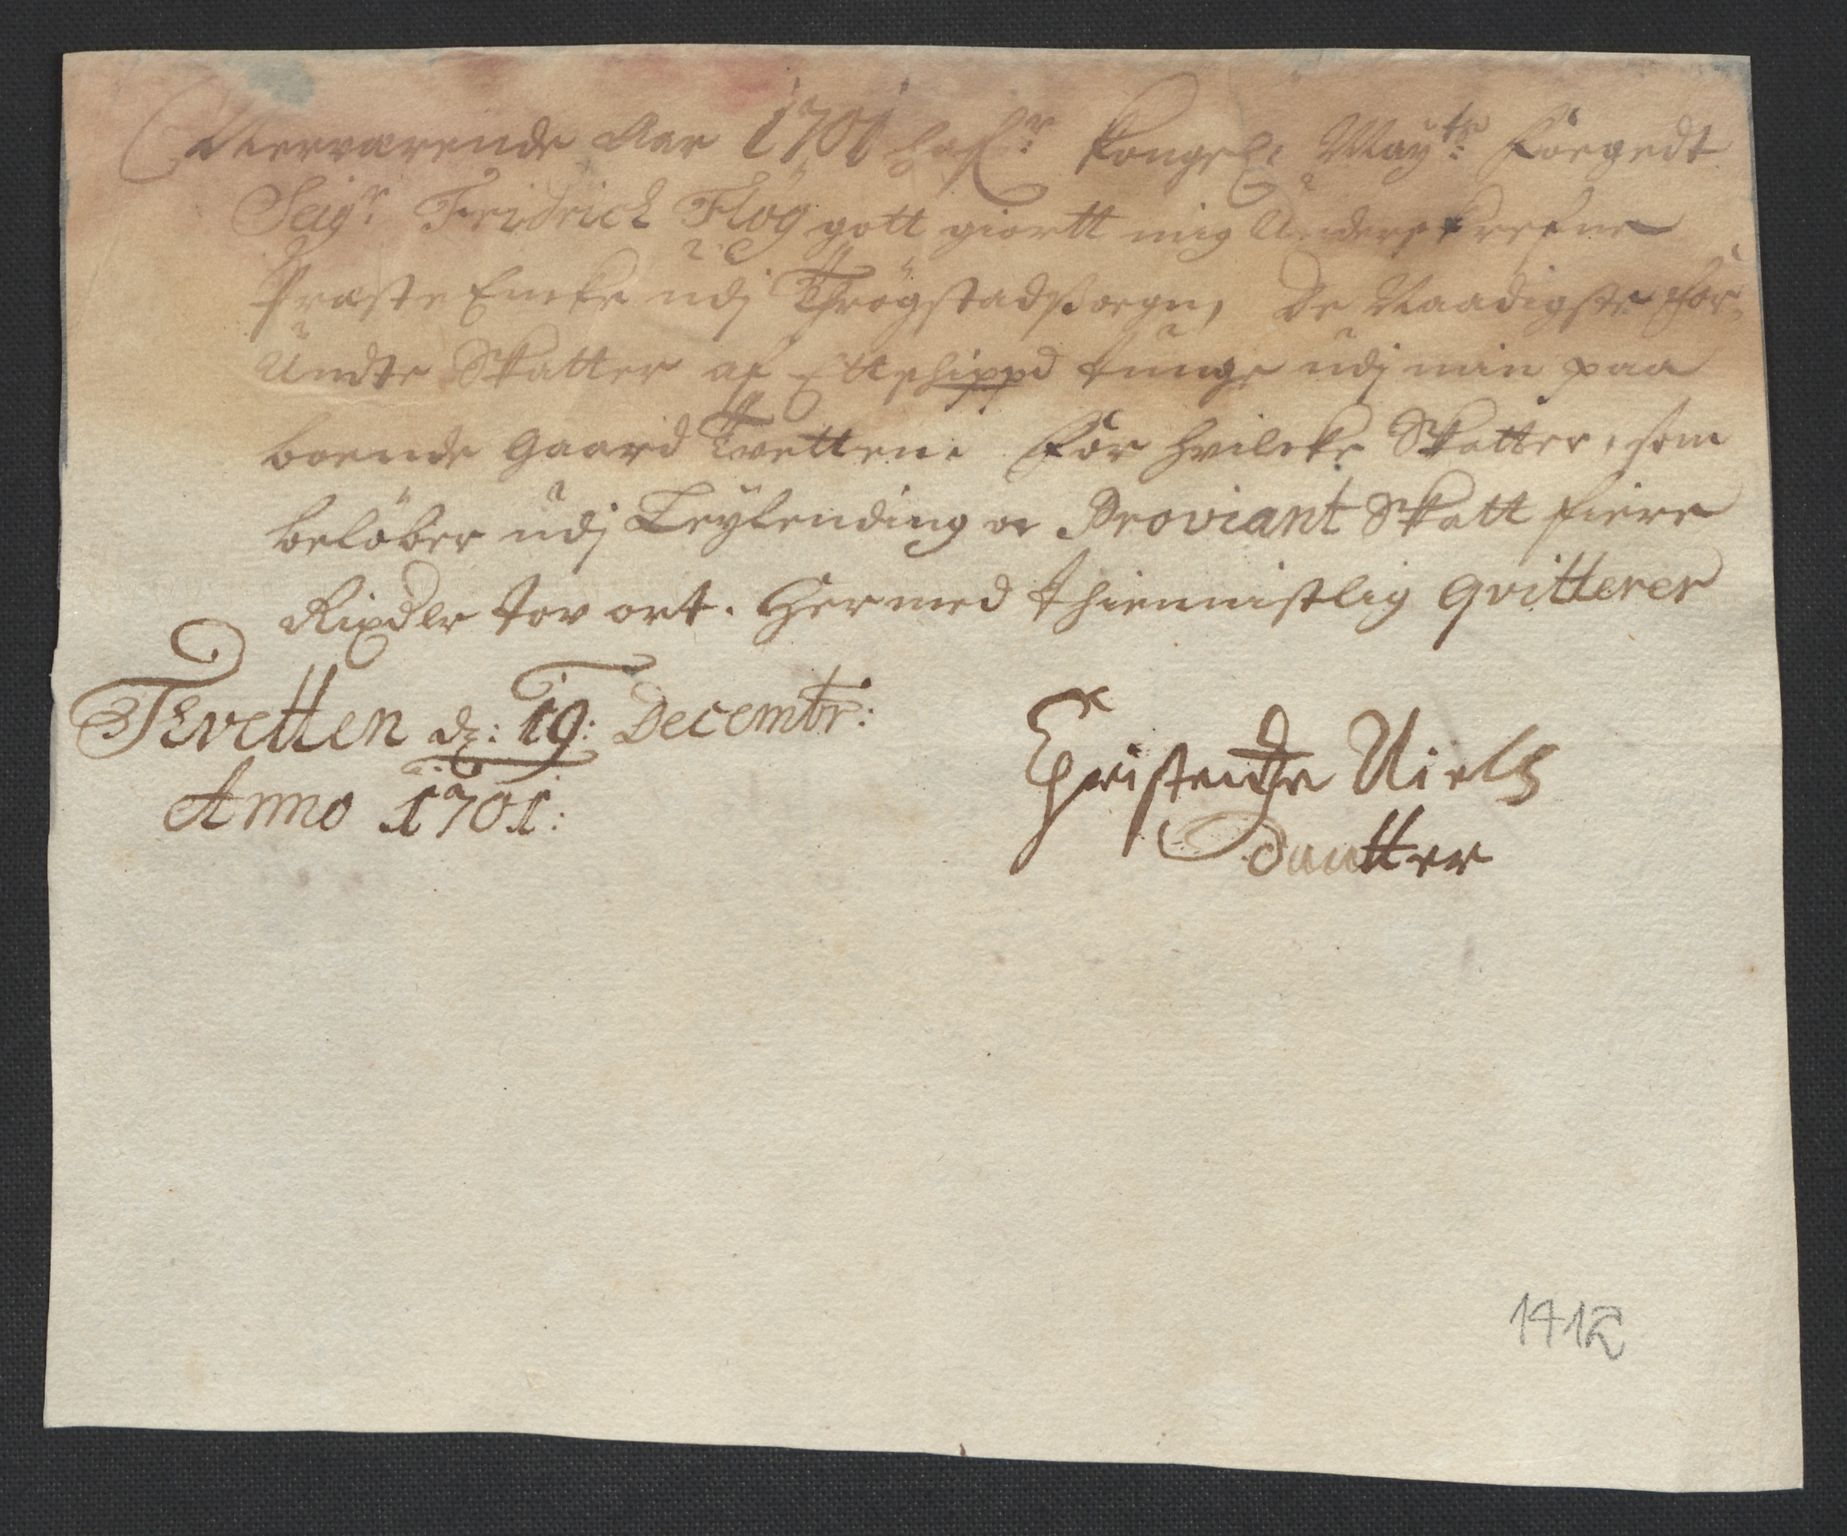 Nerværende Aar 1701 hafr: Kongel: Mayts: Foegedt
Seigr Fridrich Flög gott giortt mig Underskrefne
Præste Encke udj Thrögstadsoegn, de Naadigste for
Undte Skatter af Ett schippd tunge udj min paa
boende Gaard Tvetten. For hvilcke Skatter, som
belöber udj Leylending oc Proviant Skatt fiere
Rixdlr tov ort. Hermed thienistlig Qvitterer
Tvetten d: 19: Decembr:
Anno 1701:
Christendze Niels
daatter
1412